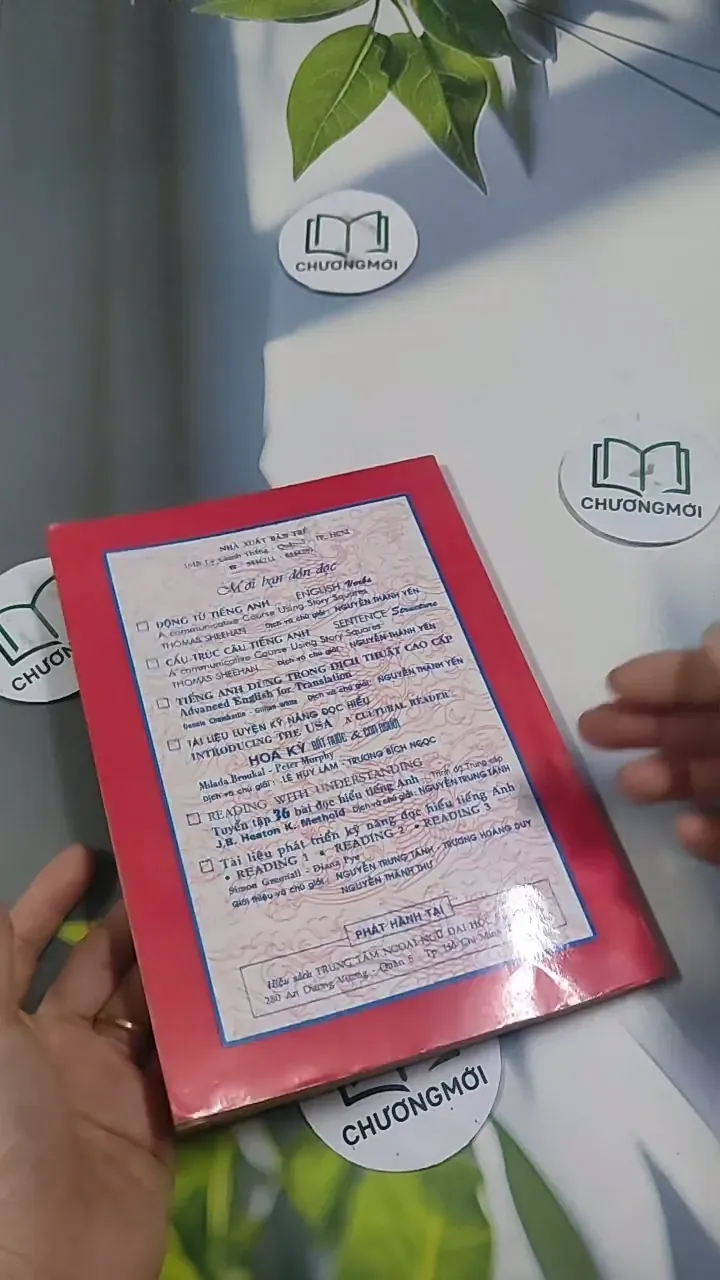 CHƯƠNGMỚI
CHƯƠNGMỚI
NHÀ XUẤT BẢN TRẺ
TP. HCM
Mời bạn đón đọc
ĐỘNG TỪ TIẾNG ANH ENGLISH Verbs
A communicative Course Using Story Squares
THOMAS SHEEHAN Dịch và chú giải : NGUYỄN THÀNH YẾN
CẤU TRÚC CÂU TIẾNG ANH SENTENCE Structure
A communicative Course Using Story Squares
THOMAS SHEEHAN Dịch và chú giải : NGUYỄN THÀNH YẾN
TIẾNG ANH DÙNG TRONG DỊCH THUẬT CAO CẤP
Advanced English for Translation
Dịch và chú giải : NGUYỄN THÀNH YẾN
TÀI LIỆU LUYỆN KỸ NĂNG ĐỌC HIỂU
INTRODUCING THE USA A CULTURAL READER
HOA KỲ ĐẤT NƯỚC & CON NGƯỜI
Milada Broukal - Peter Murphy
Dịch và chú giải : LÊ HUY LÂM - TRƯƠNG BÍCH NGỌC
READING WITH UNDERSTANDING
Tuyển tập 36 bài đọc hiểu tiếng Anh - Trình độ Trung cấp
J.B. Heaton K. Methold - Dịch và chú giải : NGUYỄN TRUNG TÁNH
Tài liệu phát triển kỹ năng đọc hiểu tiếng Anh
• READING 1 • READING 2 • READING 3
Simon Greenall - Diana Pye
Giới thiệu và chú giải : NGUYỄN TRUNG TÁNH - TRƯƠNG HOÀNG DUY
NGUYỄN THÀNH THƯ
PHÁT HÀNH TẠI
Hiệu sách TRUNG TÂM NGOẠI NGỮ ĐẠI HỌC
280 An Dương Vương - Quận 5 Tp. Hồ Chí Minh
CHƯƠNGMỚI